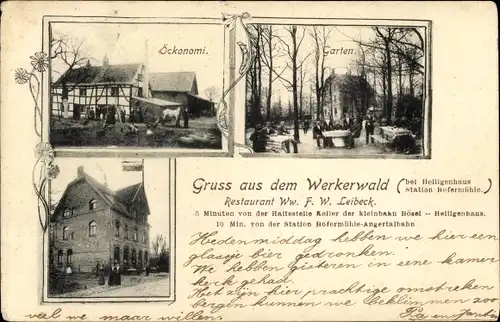 Öckonomi.
Garten.
Gruss aus dem Werkerwald (bei Heiligenhaus
Station Hofermühle.)
Restaurant Ww. F. W. Leibeck.
5 Minuten von der Haltestelle Keller der kleinbahn Hösel -- Heiligenhaus.
10 Min. von der Station Hofermühle-Angertalbahn.
Hedenmiddag hebben we hier een
glaasje bier gedronken.
We hebben gisteren in eene kamer
kerk gehad.
Het zijn hier prachtige omstreken
bergen kunnen we beklimmen zoo
veel we maar willen.